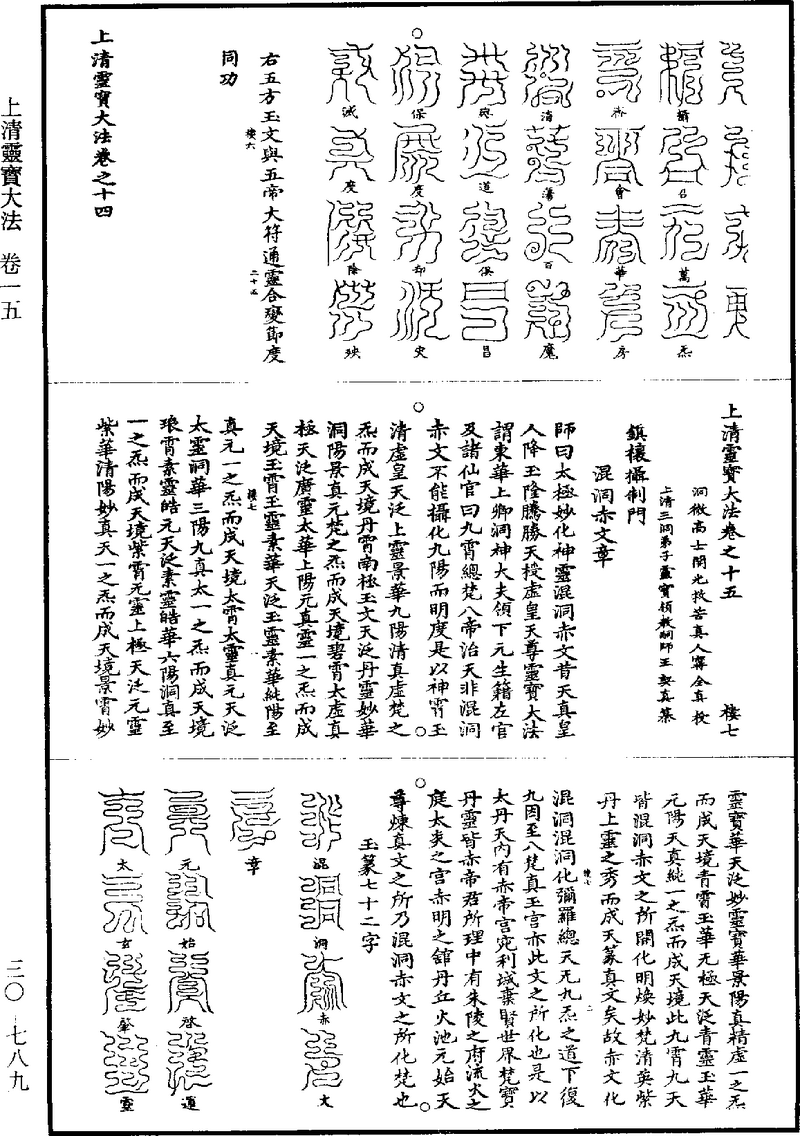 上清靈寶大法 卷一五
三〇 七八九
攝
召
萬
炁
啓
會
華
房
清
蕩
百
魔
與
道
俱
昌
保
度
却
灾
滅
度
除
殃
右五方玉文與五帝大符通靈合變節度
同功
樓六
二十五
上清靈寶大法卷之十四
上清靈寶大法卷之十五 樓七
洞微高士開光救苦真人甯全真授
上清三洞弟子靈寶領教嗣師王契真纂
鎮禳攝制門
混洞赤文章
師曰太極妙化神靈混洞赤文昔天真皇
人降玉隆騰勝天授虛皇天尊靈寶大法
謂東華上卿洞神大夫領下元生籍左官
及諸仙官曰九霄總梵八帝治天非混洞
赤文不能攝化九陽而明度是以神霄玉
清虛皇天泛上靈景華九陽清真虛梵之
炁而成天境丹霄南極玉文天泛丹靈妙華
洞陽景真元梵之炁而成天境碧霄太虛真
極天泛廣靈太華上陽元真靈一之炁而成
天境玉霄玉靈素華天泛玉靈素華純陽至
真元一之炁而成天境太霄太靈真元天泛
樓七
太靈洞華三陽九真太一之炁而成天境
琅霄素靈皓元天泛素靈皓華六陽洞真至
一之炁而成天境紫霄元靈上極天泛元靈
紫華清陽妙真天一之炁而成天境景霄妙
靈寶華天泛妙靈寶華景陽真精虛一之炁
而成天境青霄玉華无極天泛青靈玉華
元陽天真純一之炁而成天境此九霄九天
皆混洞赤文之所開化明煥妙梵清英紫
丹上靈之秀而成天篆真文矣故赤文化
混洞混洞化彌羅總天无九炁之道下復
樓七
二
九圓至八梵真王宮亦此文之所化也是以
太丹天內有赤帝宮宛利城棄賢世界梵寶
丹靈皆赤帝君所理中有朱陵之府流火之
庭太炎之宮赤明之舘丹丘火池元始天
尊煉真文之所乃混洞赤文之所化梵也
玉篆七十二字
混
洞
赤
文
章
元
始
啓
運
太
玄
肇
靈